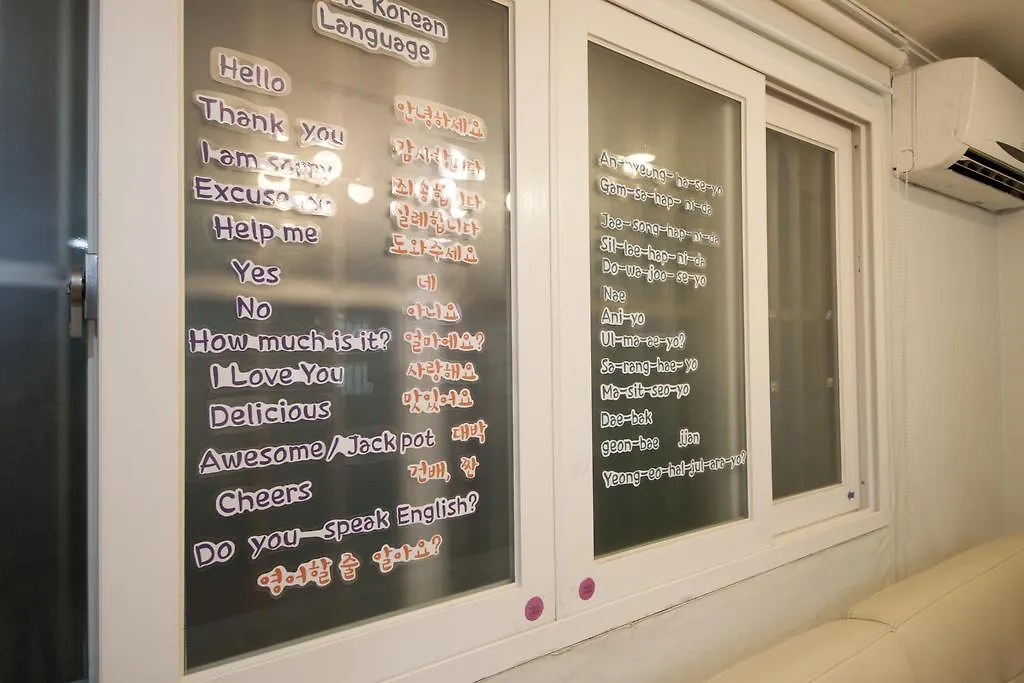 Korean
Language
Hello
안녕하세요
Thank you
감사합니다
I am sorry
죄송합니다
Excuse me
실례합니다
Help me
도와주세요
Yes
네
No
아니요
How much is it?
얼마에요?
I Love You
사랑해요
Delicious
맛있어요
Awesome/Jack pot
대박
Cheers
건배, 짠
Do you speak English?
영어할 줄 알아요?
An-nyeung-ha-se-yo
Gam-sa-hap-ni-da
Jae-song-hap-ni-da
Sil-lae-hap-ni-da
Do-wa-joo-se-yo
Nae
Ani-yo
Ul-ma-ae-yo?
Sa-rang-hae-yo
Ma-sit-seo-yo
Dae-bak
geon-bae jjan
Yeong-eo-hal-jul-ara-yo?